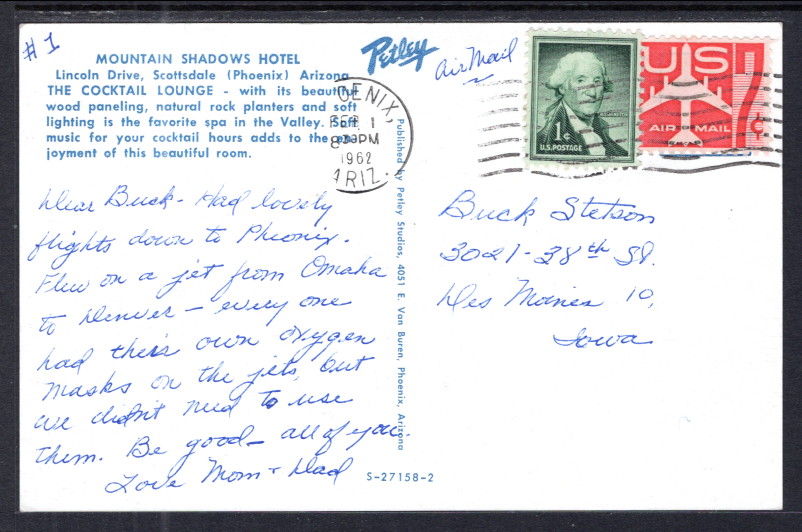 #1
MOUNTAIN SHADOWS HOTEL
Lincoln Drive, Scottsdale (Phoenix) Arizona
THE COCKTAIL LOUNGE - with its beautiful
wood paneling, natural rock planters and soft
lighting is the favorite spa in the Valley. Soft
music for your cocktail hours adds to the en-
joyment of this beautiful room.
Petley
Air Mail
OENIX,
FEB 1
8 PM
1962
ARIZ.
1¢
U.S. POSTAGE
US
AIR MAIL
7¢
Dear Buck - Had lovely
flights down to Pheonix.
Flew on a jet from Omaha
to Denver - every one
had their own oxygen
masks on the jets, but
we didn't need to use
them. Be good - all of you.
Love Mom + Dad
Published by Petley Studios, 4051 E. Van Buren, Phoenix, Arizona
S-27158-2
Buck Stetson
3021-38th St.
Des Moines 10,
Iowa